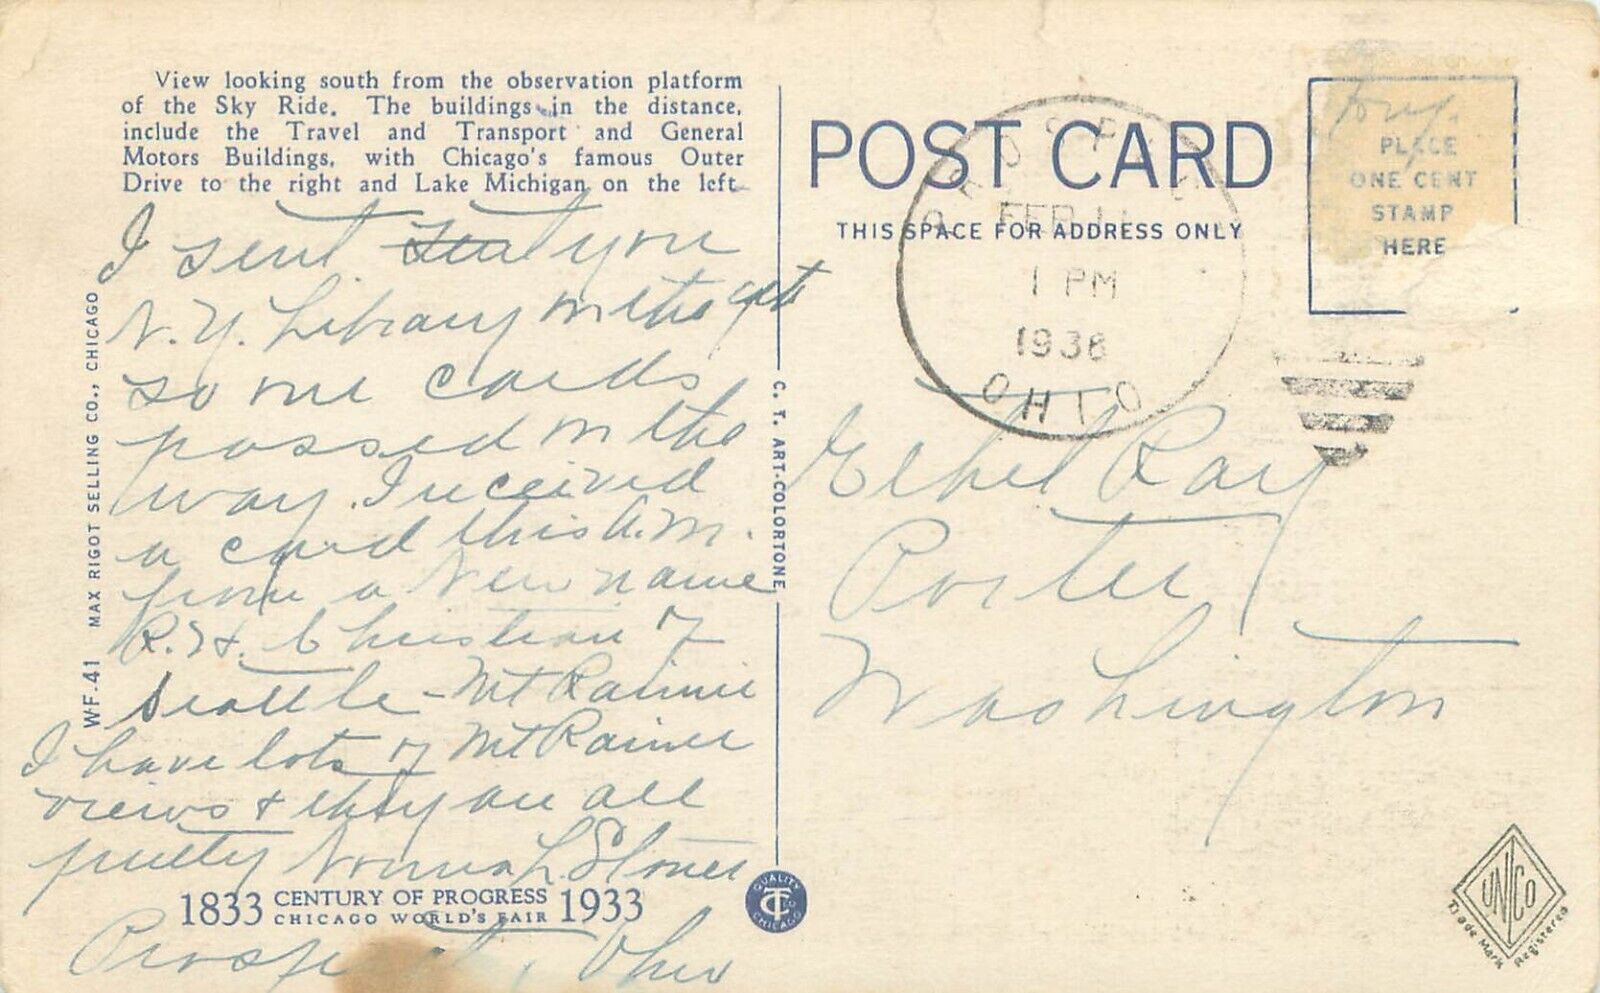 View looking south from the observation platform
of the Sky Ride. The buildings in the distance,
include the Travel and Transport and General
Motors Buildings, with Chicago's famous Outer
Drive to the right and Lake Michigan on the left
I sent sent you
N.Y. Library in the
so our cards
passed on the
way. I received
a card this A.M.
from a New name
R.H. Christian of
Seattle - Mt Rainier
I have lots of Mt Rainier
views & they are all
pretty Norma L. Stoner
1833 CENTURY OF PROGRESS 1933
CHICAGO WORLD'S FAIR
Prospect, Ohio
WF-41 MAX RIGOT SELLING CO., CHICAGO
C. T. ART-COLORTONE
QUALITY
CT CO
CHICAGO
POST CARD
THIS SPACE FOR ADDRESS ONLY
PLACE
ONE CENT
STAMP
HERE
FEB 11
1 PM
1936
OHIO
Ethel Ray
Porter
Washington
UNCO
Trade Mark Registered